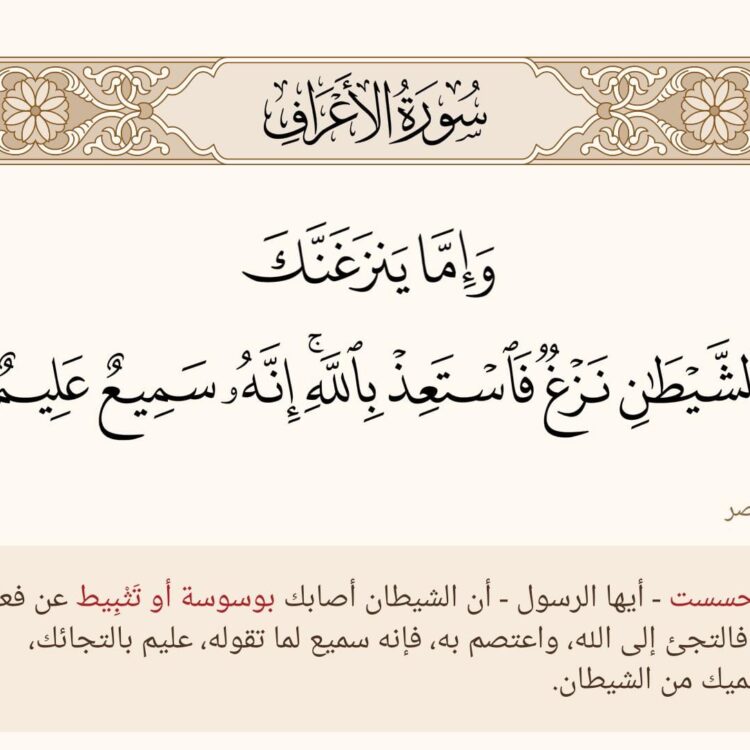 سُورَةُ الأَعْرَافِ
وَإِمَّا يَنزَغَنَّكَ
ٱلشَّيْطَٰنِ نَزْغٌ فَٱسْتَعِذْ بِٱللَّهِۚ إِنَّهُۥ سَمِيعٌ عَلِيمٌ
حسست - أيها الرسول - أن الشيطان أصابك بوسوسة أو تَثْبِيط عن فع
فالتجئ إلى الله، واعتصم به، فإنه سميع لما تقوله، عليم بالتجائك،
ميك من الشيطان.